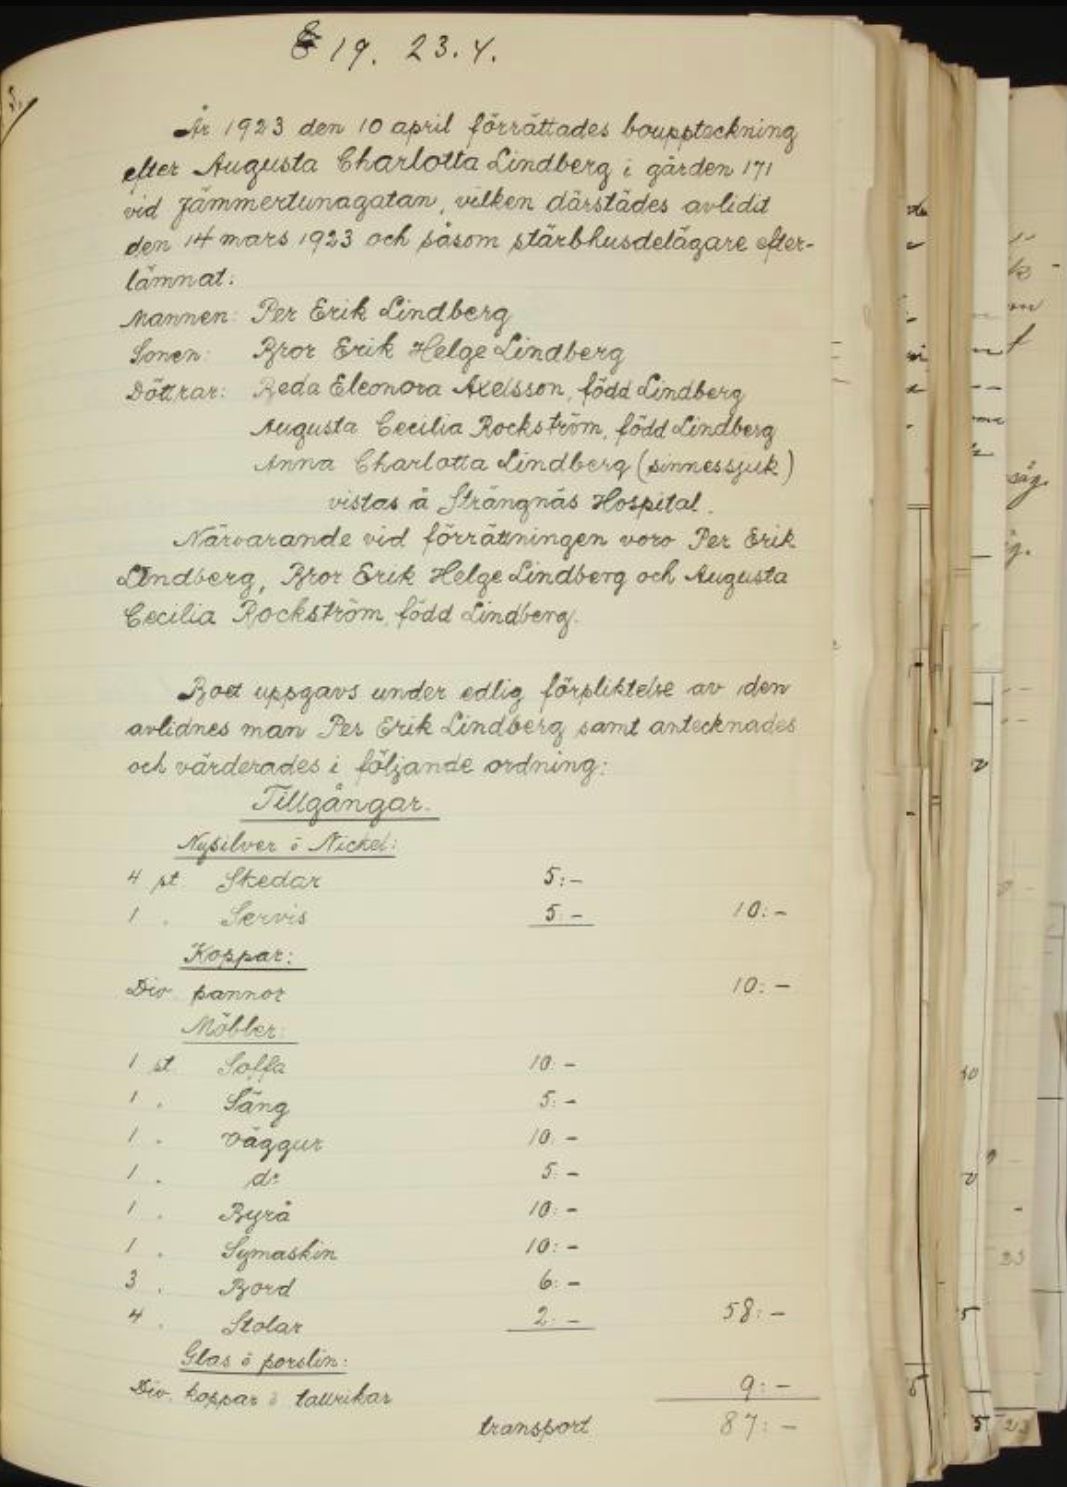 § 19. 23.4.
År 1923 den 10 april förrättades bouppteckning
efter Augusta Charlotta Lindberg i gården 171
vid Jämmertunagatan, vilken därstädes avlidit
den 14 mars 1923 och såsom stärbhusdelägare efter-
lämnat:
Mannen: Per Erik Lindberg
Sonen: Bror Erik Helge Lindberg
Döttrar: Beda Eleonora Axelsson, född Lindberg
Augusta Cecilia Rockström, född Lindberg
Anna Charlotta Lindberg (sinnessjuk)
vistas å Strängnäs Hospital.
Närvarande vid förrättningen voro Per Erik
Lindberg, Bror Erik Helge Lindberg och Augusta
Cecilia Rockström, född Lindberg.
Boet uppgavs under edlig förpliktelse av den
avlidnes man Per Erik Lindberg samt antecknades
och värderades i följande ordning:
Tillgångar.
Nysilver o Nickel:
4 st Skedar 5:-
1 " Servis 5:- 10:-
Koppar:
Div. pannor 10:-
Möbler:
1 st Soffa 10:-
1 " Säng 5:-
1 " Väggur 10:-
1 " d:o 5:-
1 " Byrå 10:-
1 " Symaskin 10:-
3 " Bord 6:-
4 " Stolar 2:- 58:-
Glas o porslin:
Div. koppar o tallrikar 9:-
transport 87:-